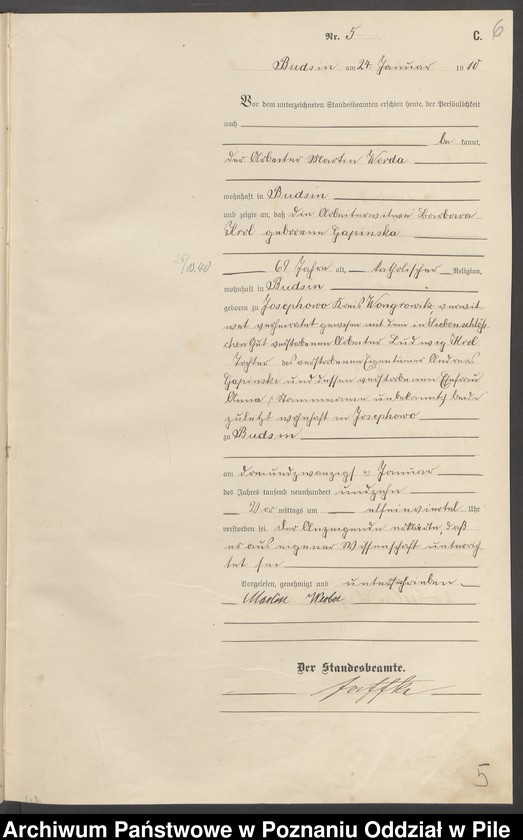 Nr. 5
C.
6
Budsin am 24. Januar 1910
Vor dem unterzeichneten Standesbeamten erschien heute, der Persönlichkeit
nach
be kannt,
der Arbeiter Martin Werda
wohnhaft in Budsin
und zeigte an, daß die Arbeiterwitwe Barbara
Krol geborene Gapinska
69 Jahre alt, katholischer Religion,
wohnhaft in Budsin
geboren zu Josephowo Kreis Wongrowitz, verwit
wet verheiratet gewesen mit dem in
chen Gut verstorbenen Arbeiter Ludwig Krol
Tochter des verstorbenen Eigentümer Andreas
Gapinski und dessen verstorbenen Ehefrau
Anna (Stammname unbekannt) beide
zuletzt wohnhaft in Josephowo
zu Budsin
am dreiundzwanzigsten Januar
des Jahres tausend neunhundert und zehn
Vor mittags um elfeinviertel Uhr
verstorben sei. Der Anzeigende erklärte, daß
er aus eigener Wissenschaft unterrich
tet sei
Vorgelesen, genehmigt und unterschrieben
Martin Werda
Der Standesbeamte.
5
Archiwum Państwowe w Poznaniu Oddział w Pile